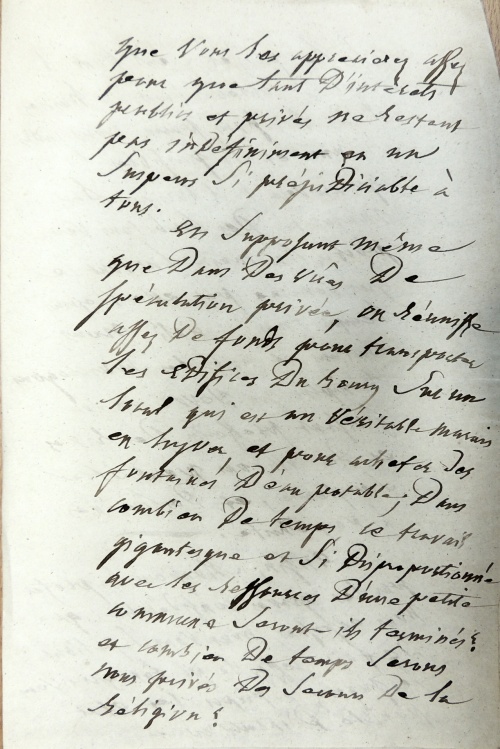 que vous les apprecierez assez
pour que tant D'intérêts
publics et privés ne restent
pas indéfiniment en un
suspens si préjudiciable à
tous.
En supposant même
que Dans Des vües De
spéculation privée, on réunisse
assez De fonds pour transporter
les Edifices Du bourg sur un
local qui est un véritable marais
en hyver, et pour acheter Des
fontaines D'eau potable; Dans
combien De temps ce travail
gigantesque et si Disproportionné
avec les ressources D'une petite
commune seront ils terminés?
et combien De temps serons
nous privés Des secours De la
Réligion?